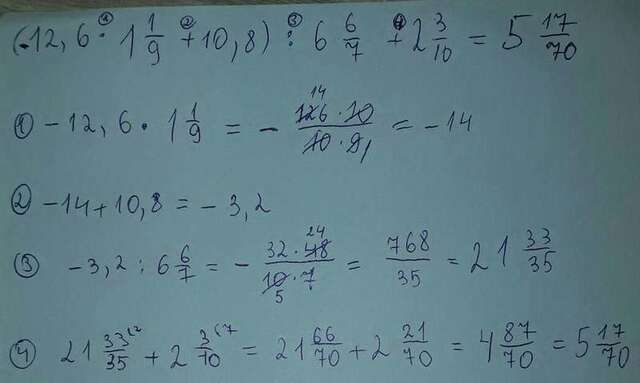 (-12,6 · 1 1/9 + 10,8) : 6 6/7 + 2 3/10 = 5 17/70
① -12,6 · 1 1/9 = - 126·10/10·9 = -14
② -14+10,8 = -3,2
③ -3,2 : 6 6/7 = - 32·48/10·7 = 768/35 = 21 33/35
④ 21 33/35 + 2 3/10 = 21 66/70 + 2 21/70 = 4 87/70 = 5 17/70